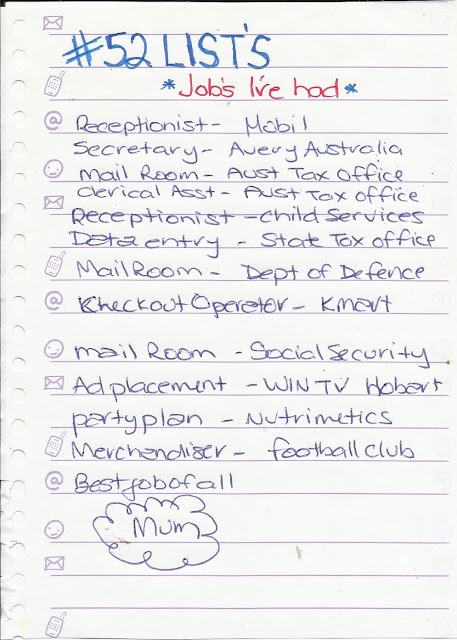 #52 LIST'S
*Job's I've had*
Receptionist - Mobil
Secretary - Avery Australia
Mail Room - Aust Tax Office
Clerical Asst - Aust Tax office
Receptionist - Child Services
Data entry - State Tax office
Mail Room - Dept of Defence
Kheckout Operator - Kmart
mail Room - Social Security
Ad placement - WIN TV Hobart
party plan - Nutrimetics
Merchandiser - football club
Best job of all
Mum